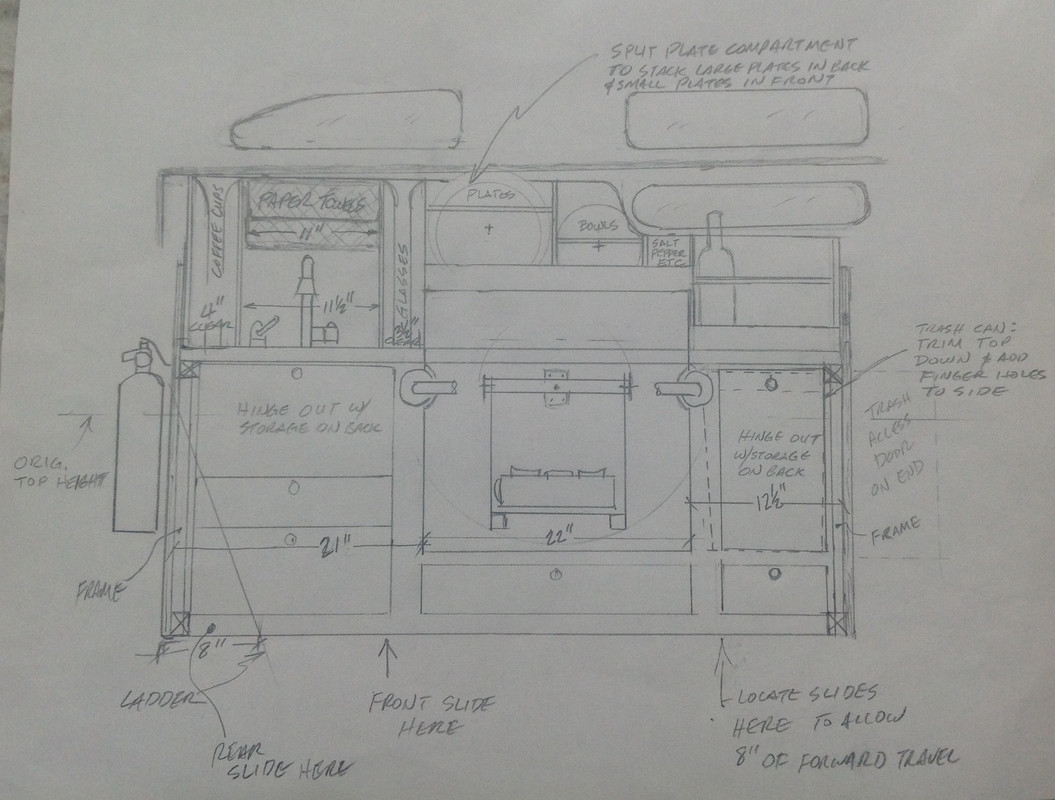 SPLIT PLATE COMPARTMENT
TO STACK LARGE PLATES IN BACK
& SMALL PLATES IN FRONT
COFFEE CUPS
PAPER TOWELS
11"
PLATES
BOWLS
SALT
PEPPER
ETC
GLASSES
4"
CLEAR
11½"
CLEAR
TRASH CAN:
TRIM TOP
DOWN & ADD
FINGER HOLES
TO SIDE
TRASH
ACCESS
DOOR
ON END
HINGE OUT W/
STORAGE ON BACK
HINGE OUT
W/STORAGE
ON BACK
ORIG.
TOP HEIGHT
12½"
21"
22"
FRAME
FRAME
8"
LADDER
FRONT SLIDE
HERE
LOCATE SLIDES
HERE TO ALLOW
8" OF FORWARD TRAVEL
REAR
SLIDE HERE